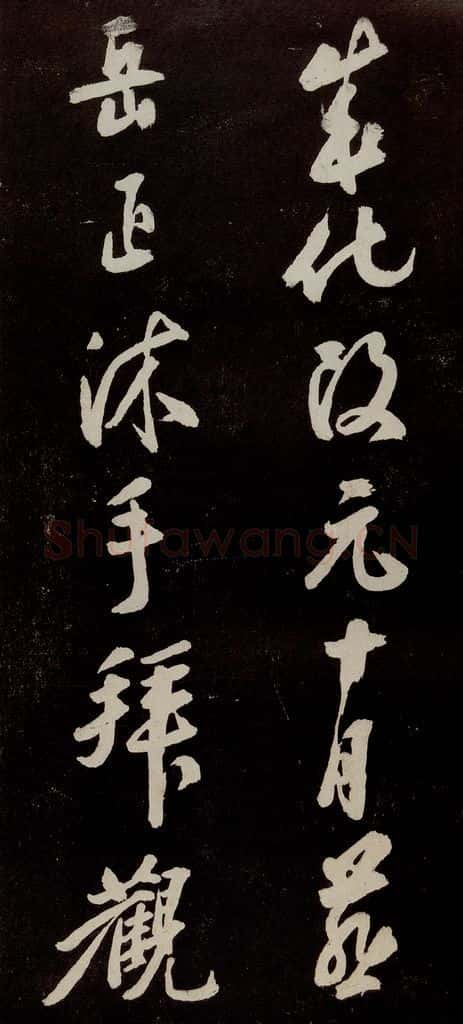 成化改元十月燕
岳正沐手拜觀
Shufawang.CN